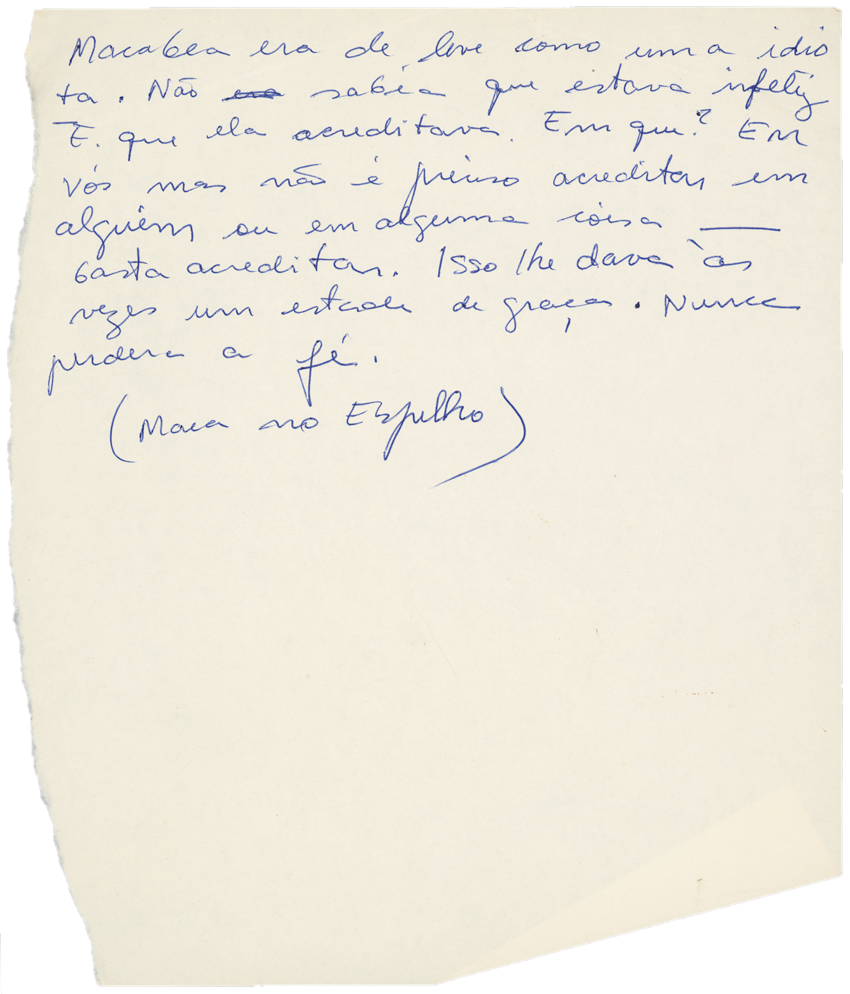 Macabea era de leve como uma idio
ta. Não era sabia que estava infeliz
E. que ela acreditava. Em que? Em
vós mas não é preciso acreditar em
alguém ou em alguma coisa —
basta acreditar. Isso lhe dava às
vezes um estado de graça. Nunca
perdera a fé.
(Maca no Espelho)